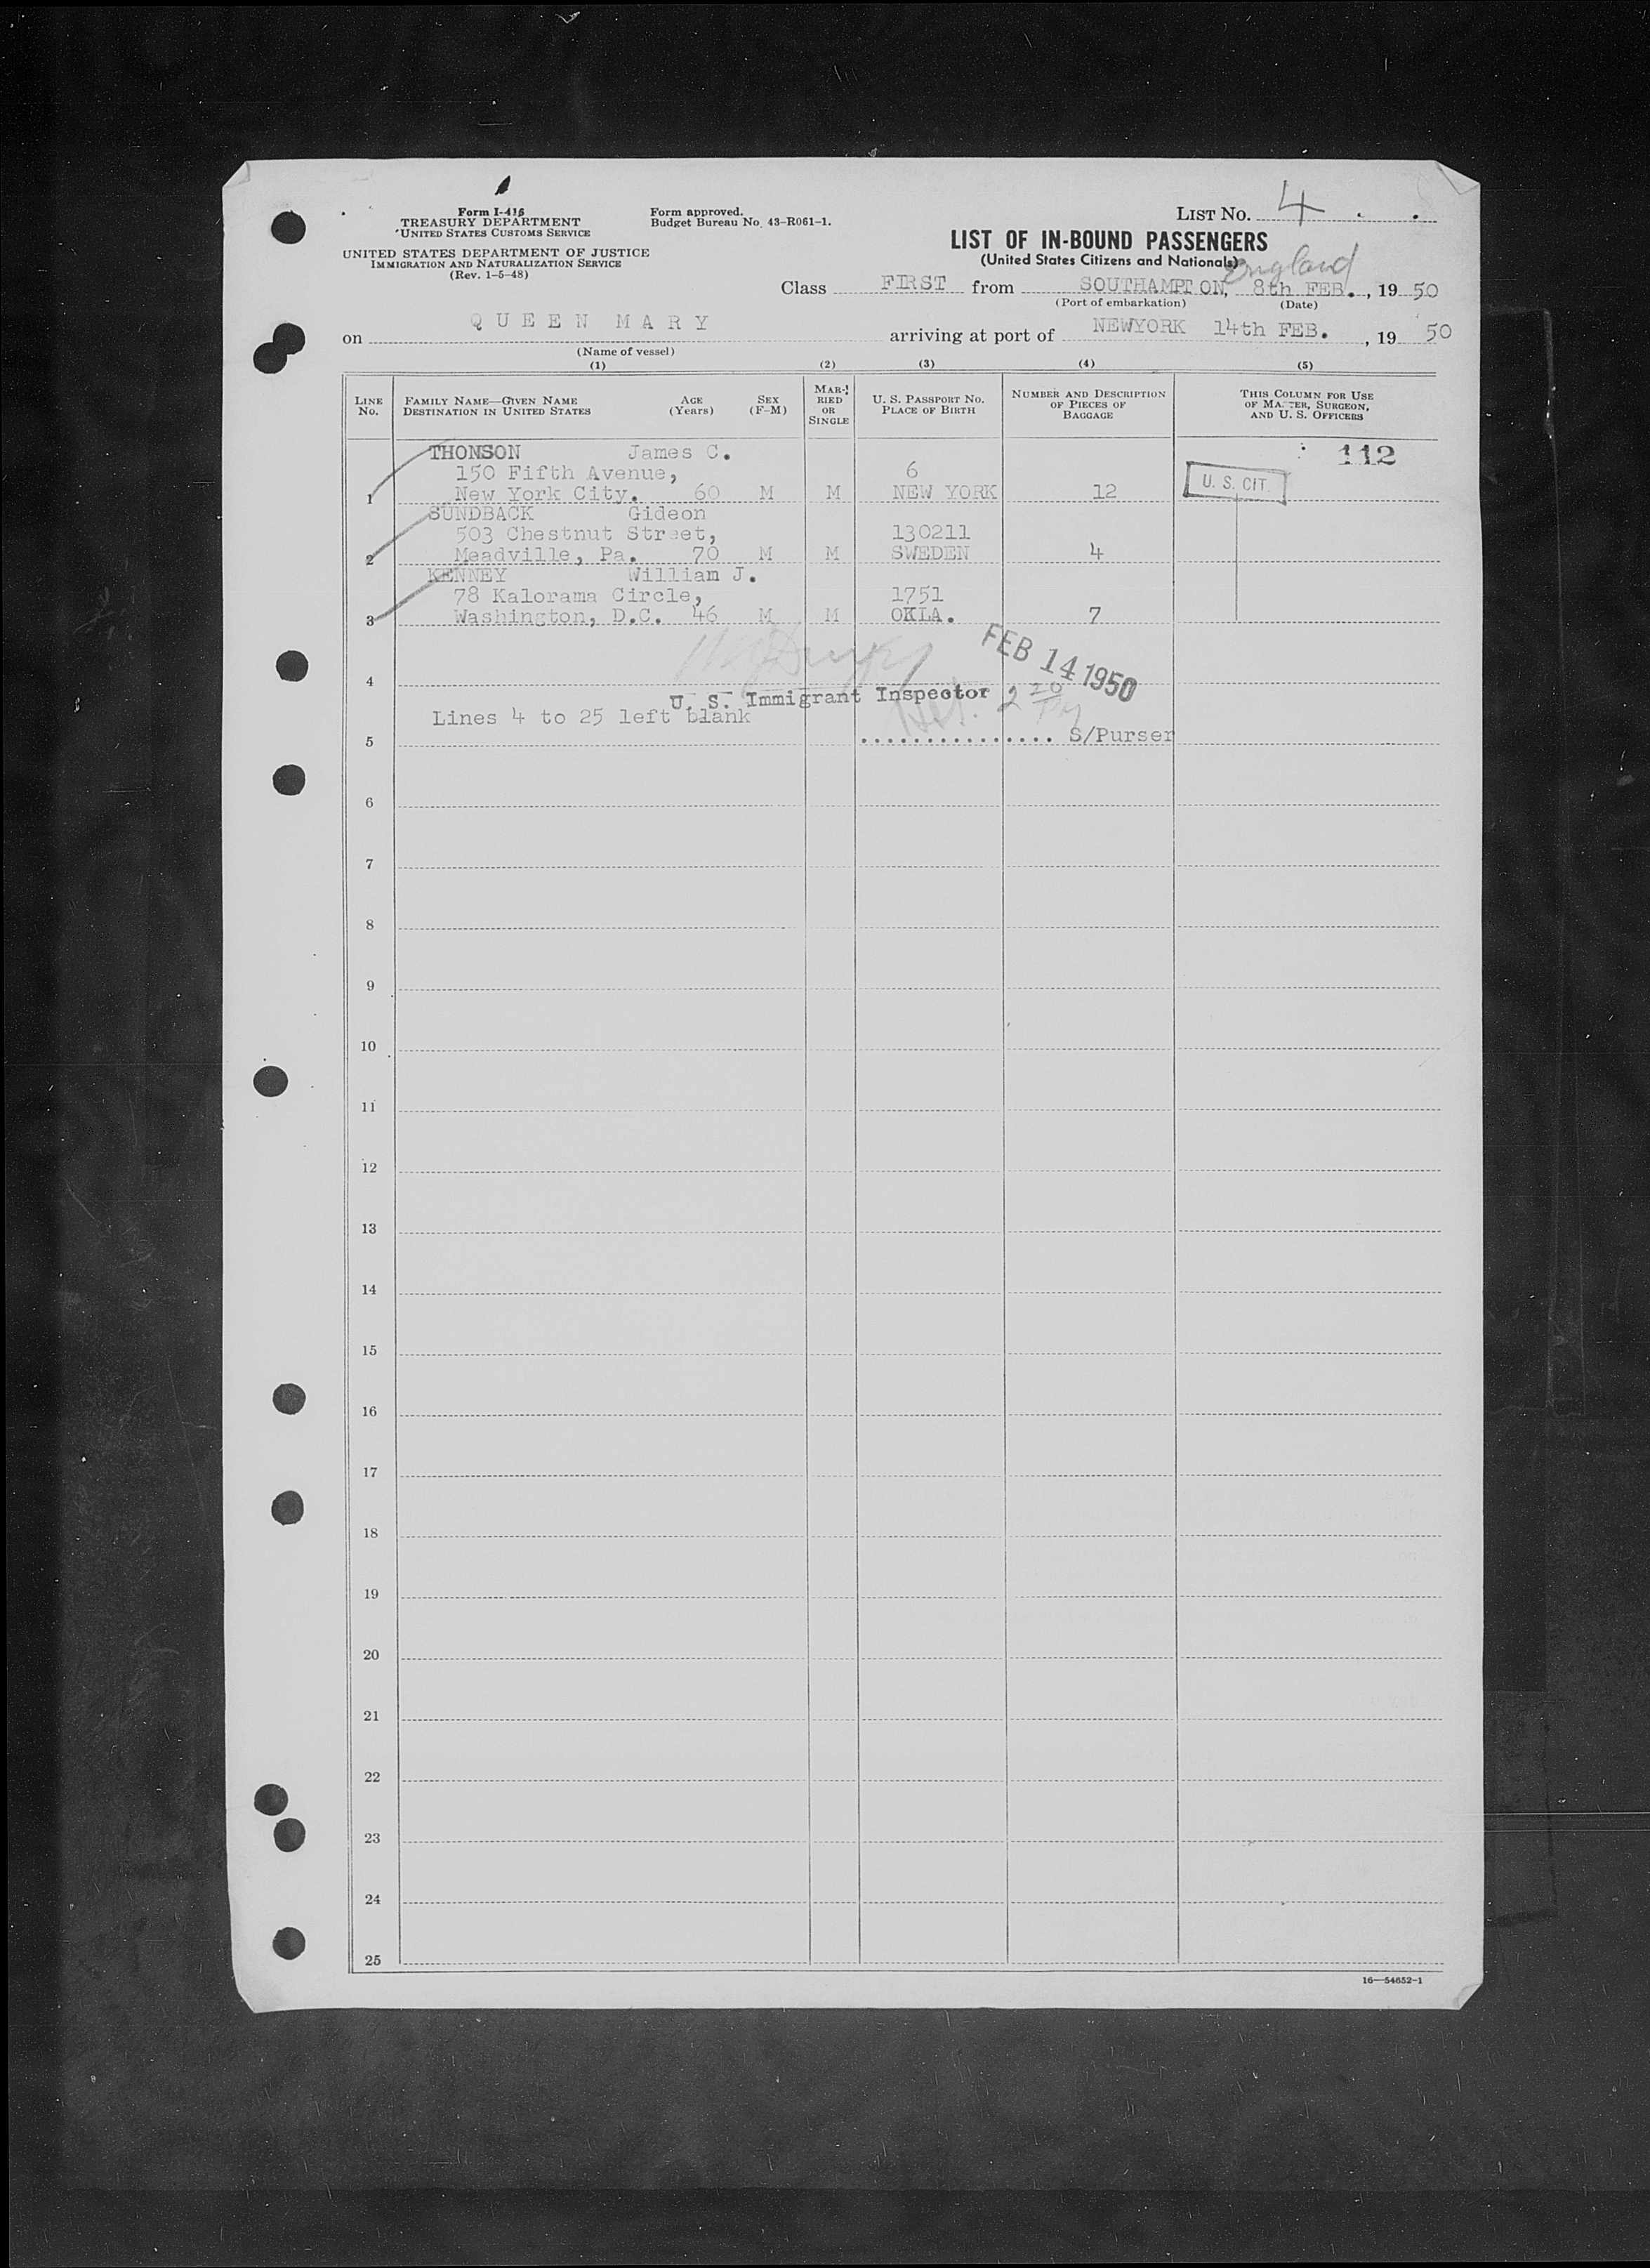 Form I-416
TREASURY DEPARTMENT
UNITED STATES CUSTOMS SERVICE
UNITED STATES DEPARTMENT OF JUSTICE
IMMIGRATION AND NATURALIZATION SERVICE
(Rev. 1-5-48)
Form approved.
Budget Bureau No. 43-R061-1.
LIST No. 4
LIST OF IN-BOUND PASSENGERS
(United States Citizens and Nationals)
England
Class FIRST from SOUTHAMPTON, 8th FEB., 1950
(Port of embarkation) (Date)
on QUEEN MARY arriving at port of NEWYORK 14th FEB., 1950
(Name of vessel)
(1) (2) (3) (4) (5)
LINE No. FAMILY NAME—GIVEN NAME DESTINATION IN UNITED STATES AGE (Years) SEX (F-M) MARRIED OR SINGLE U. S. PASSPORT No. PLACE OF BIRTH NUMBER AND DESCRIPTION OF PIECES OF BAGGAGE THIS COLUMN FOR USE OF MASTER, SURGEON, AND U. S. OFFICERS
THONSON James C. 112
150 Fifth Avenue, 6
1 New York City. 60 M M NEW YORK 12 U. S. CIT.
SUNDBACK Gideon
503 Chestnut Street, 130211
2 Meadville, Pa. 70 M M SWEDEN 4
KENNEY William J.
78 Kalorama Circle, 1751
3 Washington, D.C. 46 M M OKLA. 7
FEB 14 1950
4
U. S. Immigrant Inspector 2 20 PM
Lines 4 to 25 left blank
5 ................ S/Purser
6
7
8
9
10
11
12
13
14
15
16
17
18
19
20
21
22
23
24
25
16—54652-1